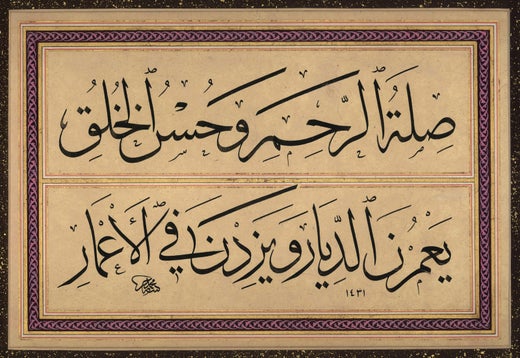 صِلَةُ الرَّحِمِ وَحُسْنُ الْخُلُقِ
يَعْمُرْنَ الدِّيَارَ وَيَزِدْنَ فِي الْأَعْمَارِ
١٤٣١